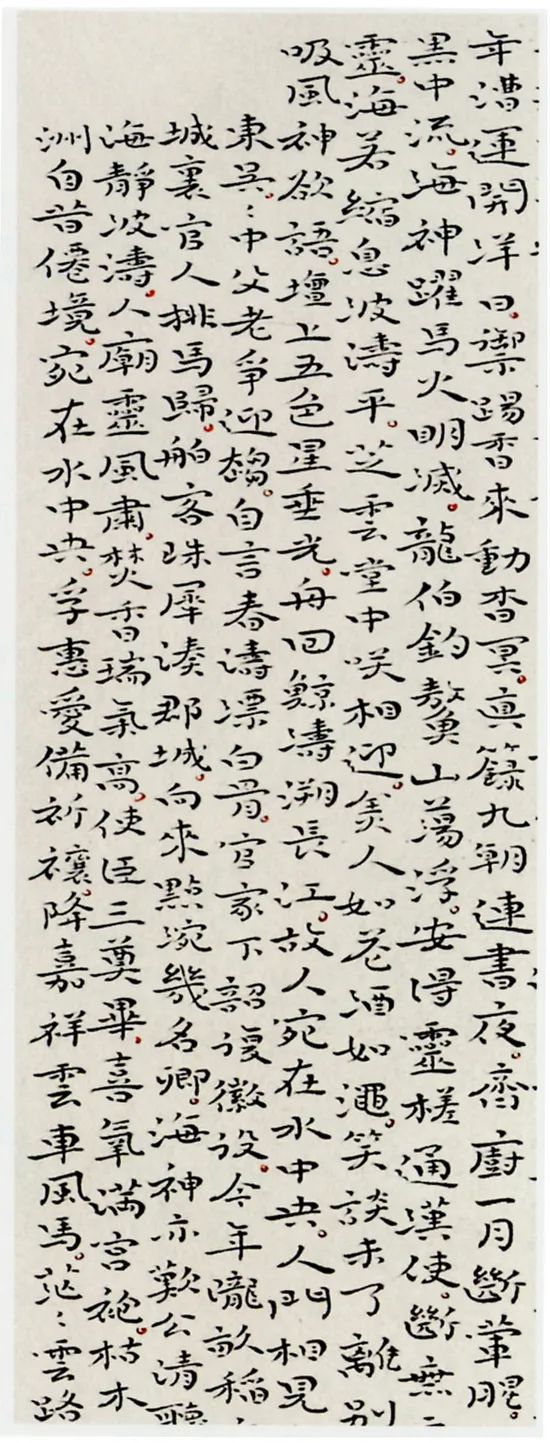 年漕運開洋日。御賜香來動杳冥。真籙九朝連晝夜。齋廚一月斷葷腥。
黑中流。海神躍馬火明滅。龍伯釣鰲山蕩浮。安得靈槎通漢使。斷無
靈。海若縮息波濤平。芝雲堂中咲相迎。美人如花酒如澠。笑談未了離別
吸風神欲語。壇上五色星垂光。舟回鯨濤溯長江。故人宛在水中央。人門相見
東吳。〻中父老爭迎。自言春濤漂白骨。官家下詔復徽設。今年隴畝稻
城裏官人排馬歸。舶客珠犀湊郡城。向來點涴幾名卿。海神亦歎公清聽
海靜波濤。人廟靈風肅。焚香瑞氣高。使臣三奠畢。喜氣滿宮袍。枯木
洲自昔僊境。宛在水中央。孚惠愛備祈禳。降嘉祥雲車風馬。茫〻雲路